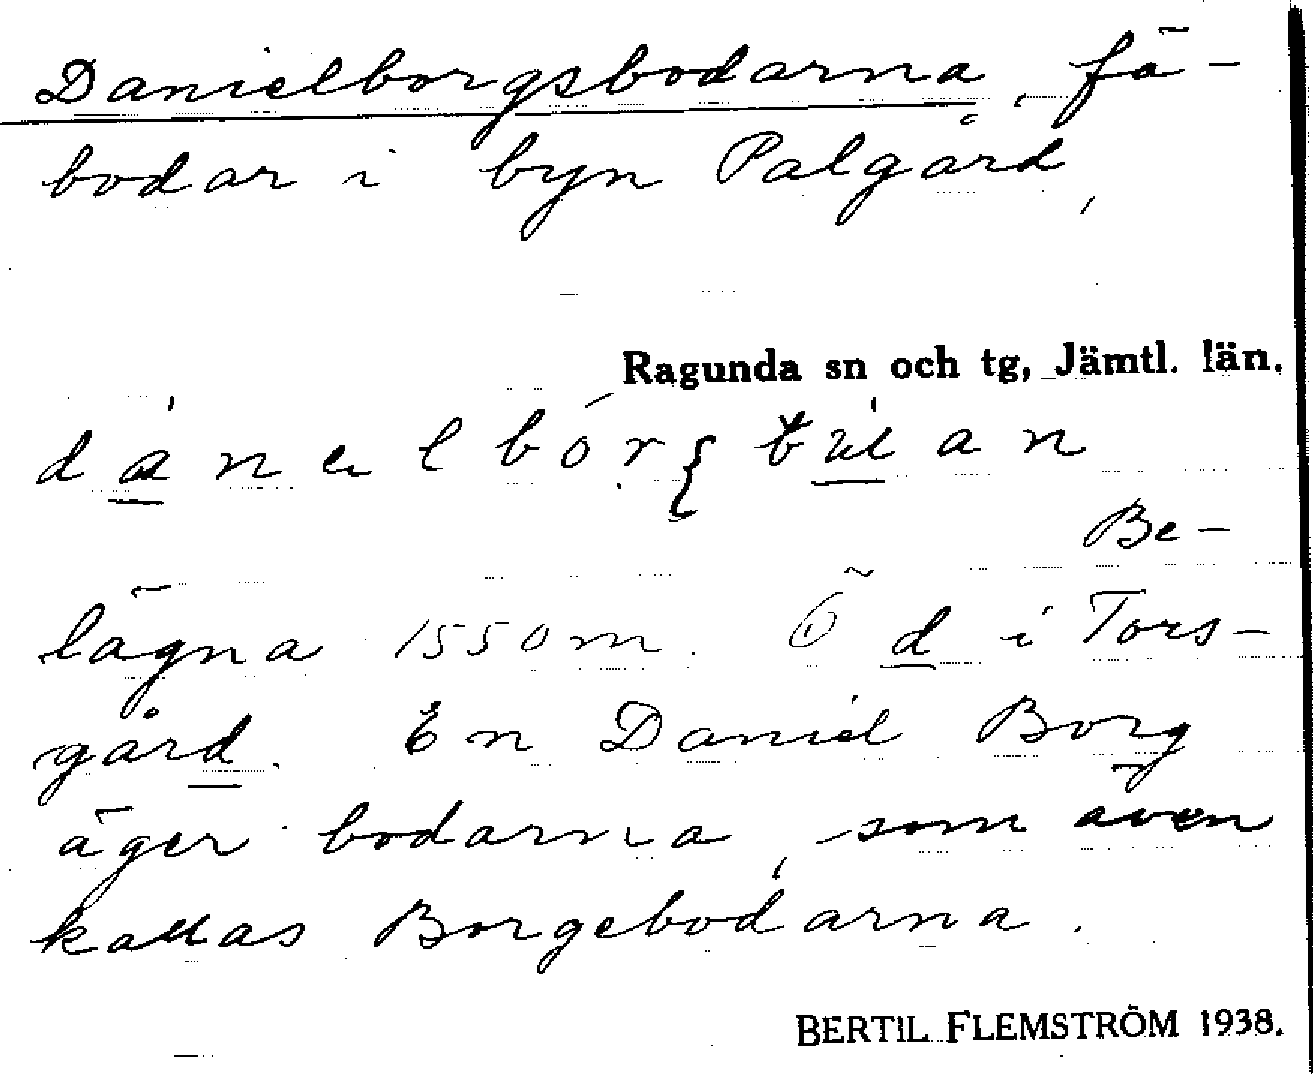 Danielborgsbodarna, fä-
bodar i byn Pålgård,
Ragunda sn och tg, Jämtl. län.
Be-
lägna 1550 m. Ö d i Tors-
gård. En Daniel Borg
äger bodarna, som även
kallas Borgebodarna.
BERTIL FLEMSTRÖM 1938.